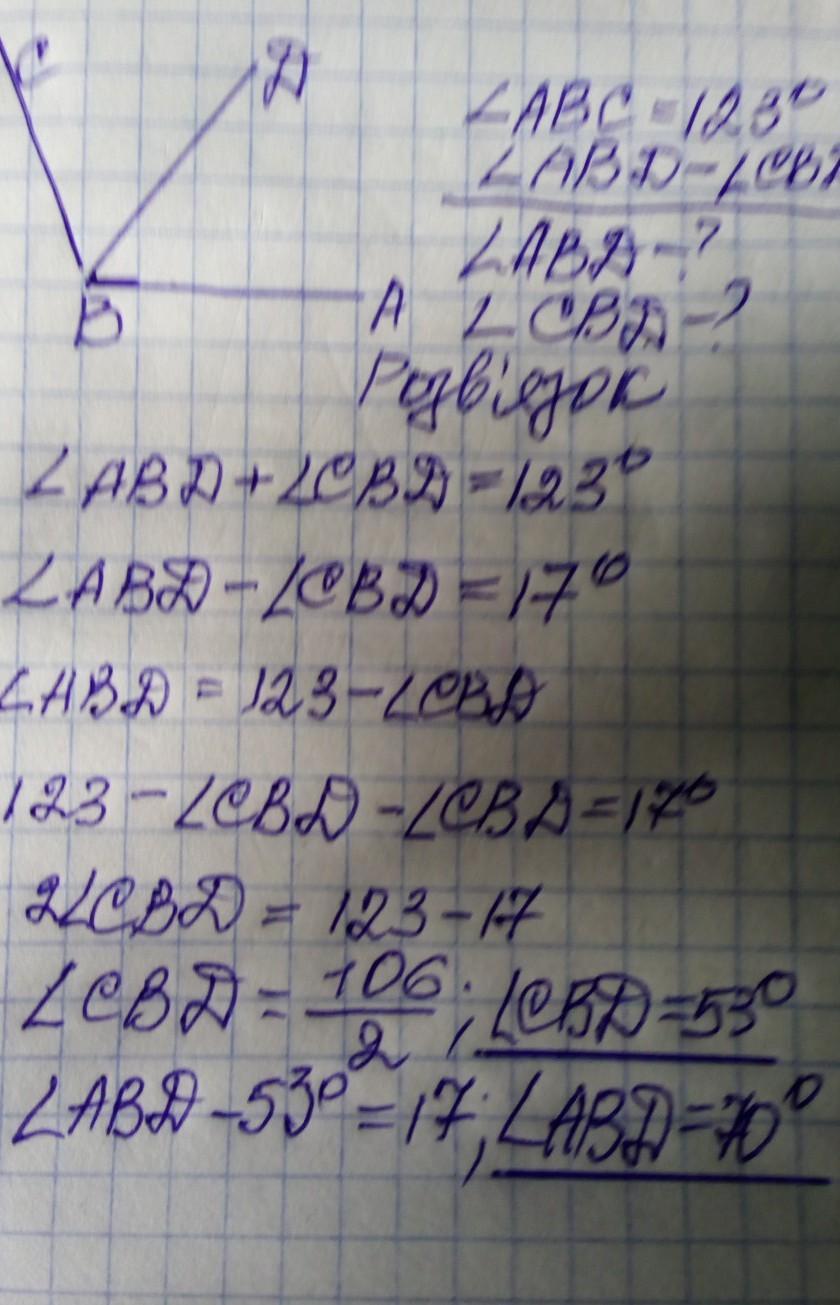 C
D
B
A
∠ABC = 123°
∠ABD - ∠CBD
∠ABD - ?
∠CBD - ?
Розв'язок
∠ABD + ∠CBD = 123°
∠ABD - ∠CBD = 17°
∠ABD = 123 - ∠CBD
123 - ∠CBD - ∠CBD = 17°
2∠CBD = 123 - 17
∠CBD = 106/2 ; ∠CBD = 53°
∠ABD - 53° = 17 ; ∠ABD = 70°